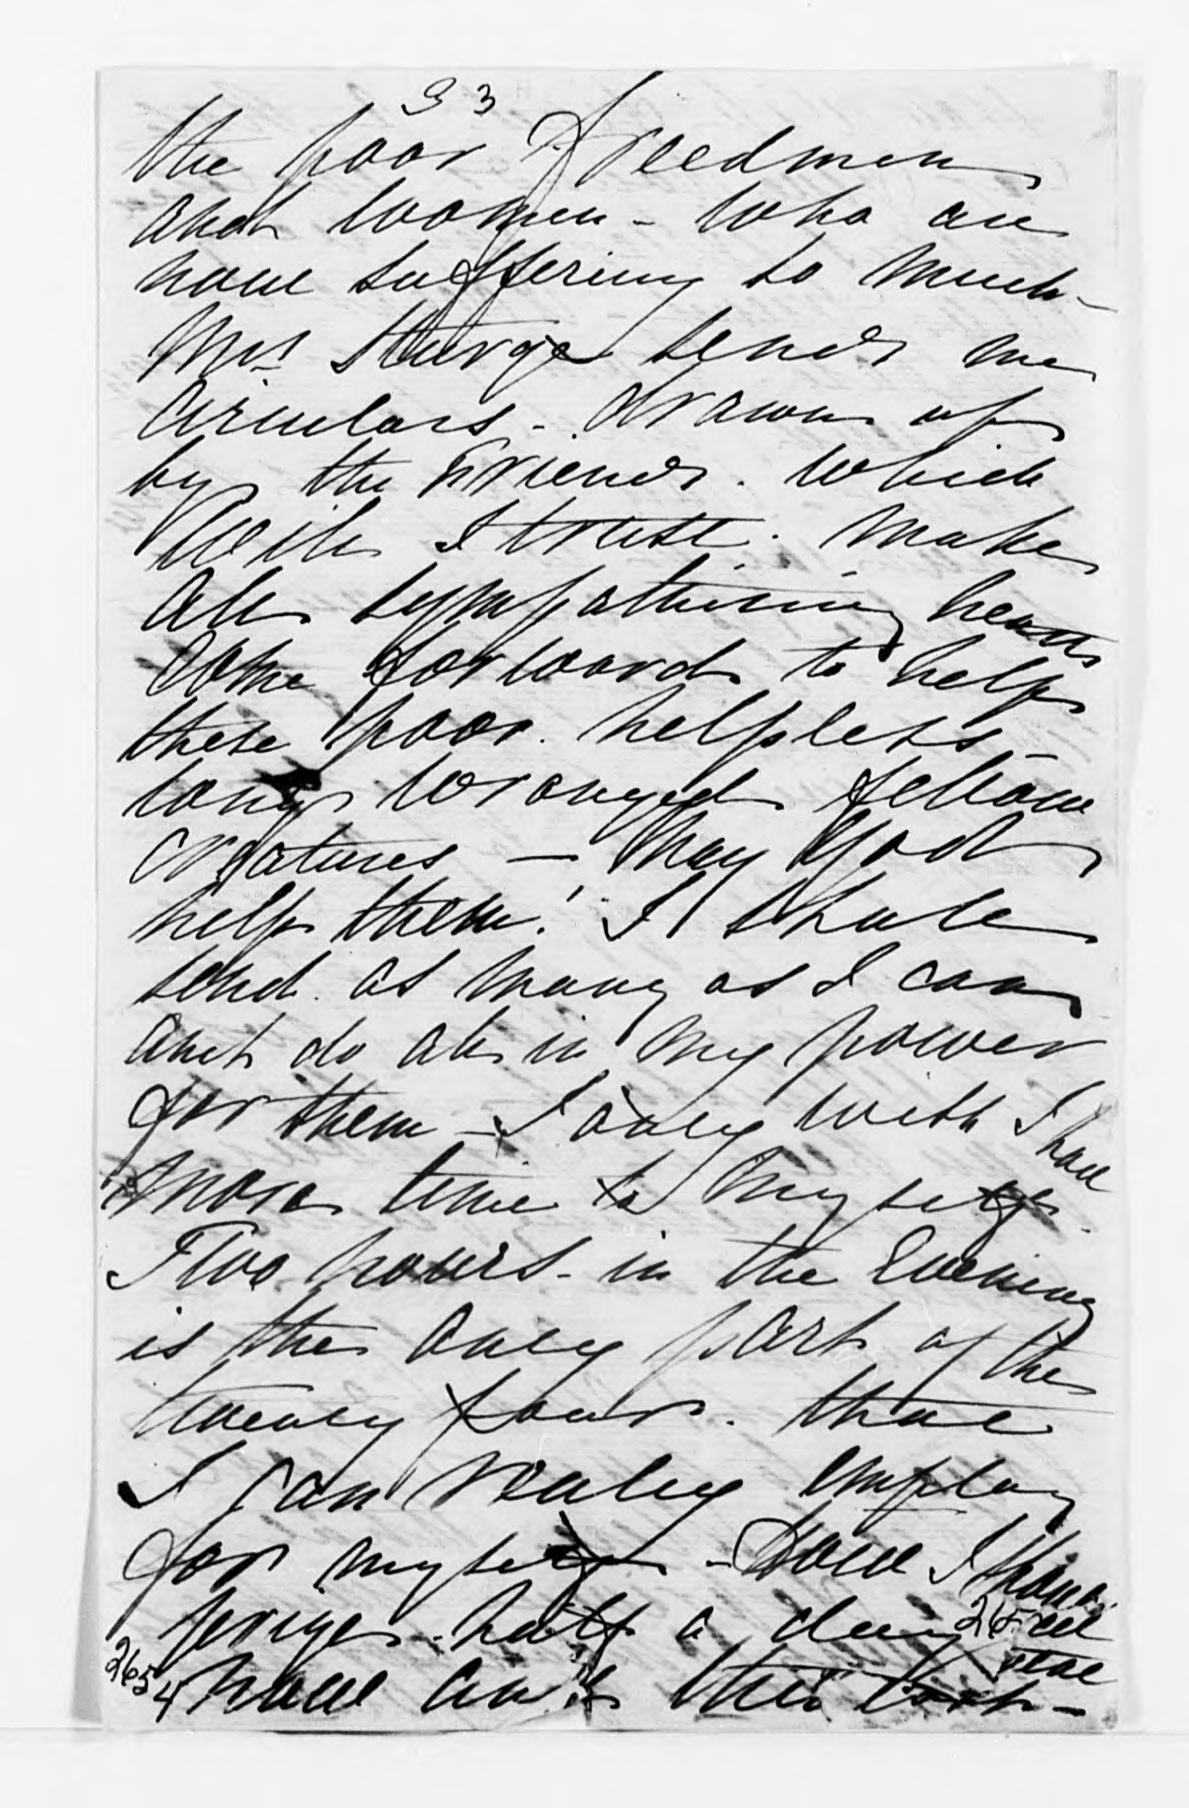 33
the poor Freedmen
and women - who are
now suffering so much -
Mrs Sturge sends me
Circulars - drawn up
by the Friends. which
will I trust. make
all sympathising hearts
come forward to help
these poor. helpless -
long wronged fellow
creatures - May God
help them! I shall
send. as many as I can
and do all in my power
for them - I only wish I had
more time to myself.
Two hours - in the Evening
is the only part of the
twenty four. that
I can really employ
for myself - How I should
prize. half a day
265
2654 now and then